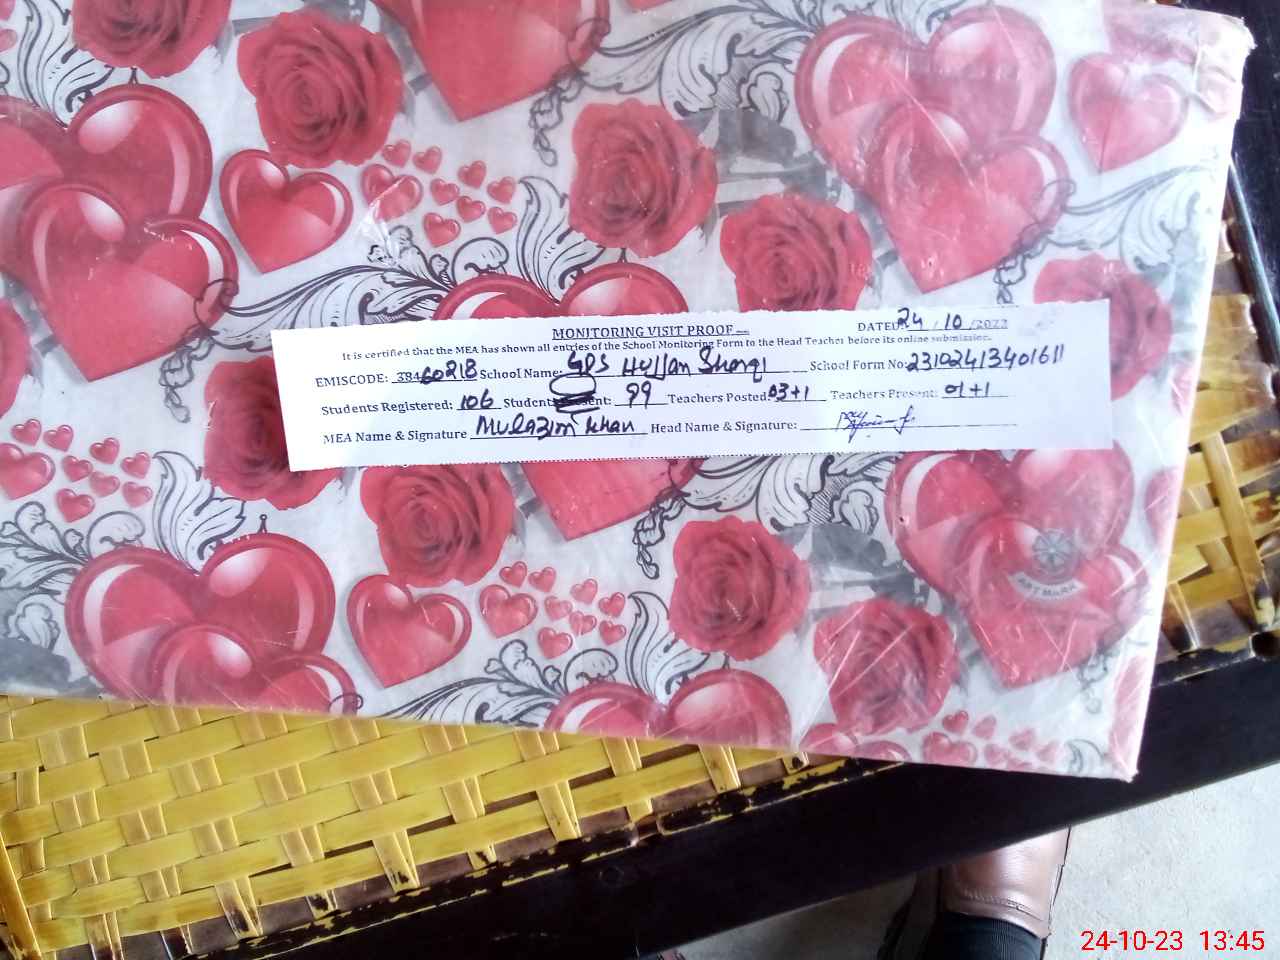 MONITORING VISIT PROOF
DATED 24 / 10 /2022
It is certified that the MEA has shown all entries of the School Monitoring Form to the Head Teacher before its online submission.
EMISCODE: 38460218 School Name: GPS Hujjan Sharqi School Form No: 23102413401611
Students Registered: 106 Students Present: 99 Teachers Posted: 03+1 Teachers Present: 01+1
MEA Name & Signature Mulazim Khan Head Name & Signature:
ART MARK
24-10-23 13:45